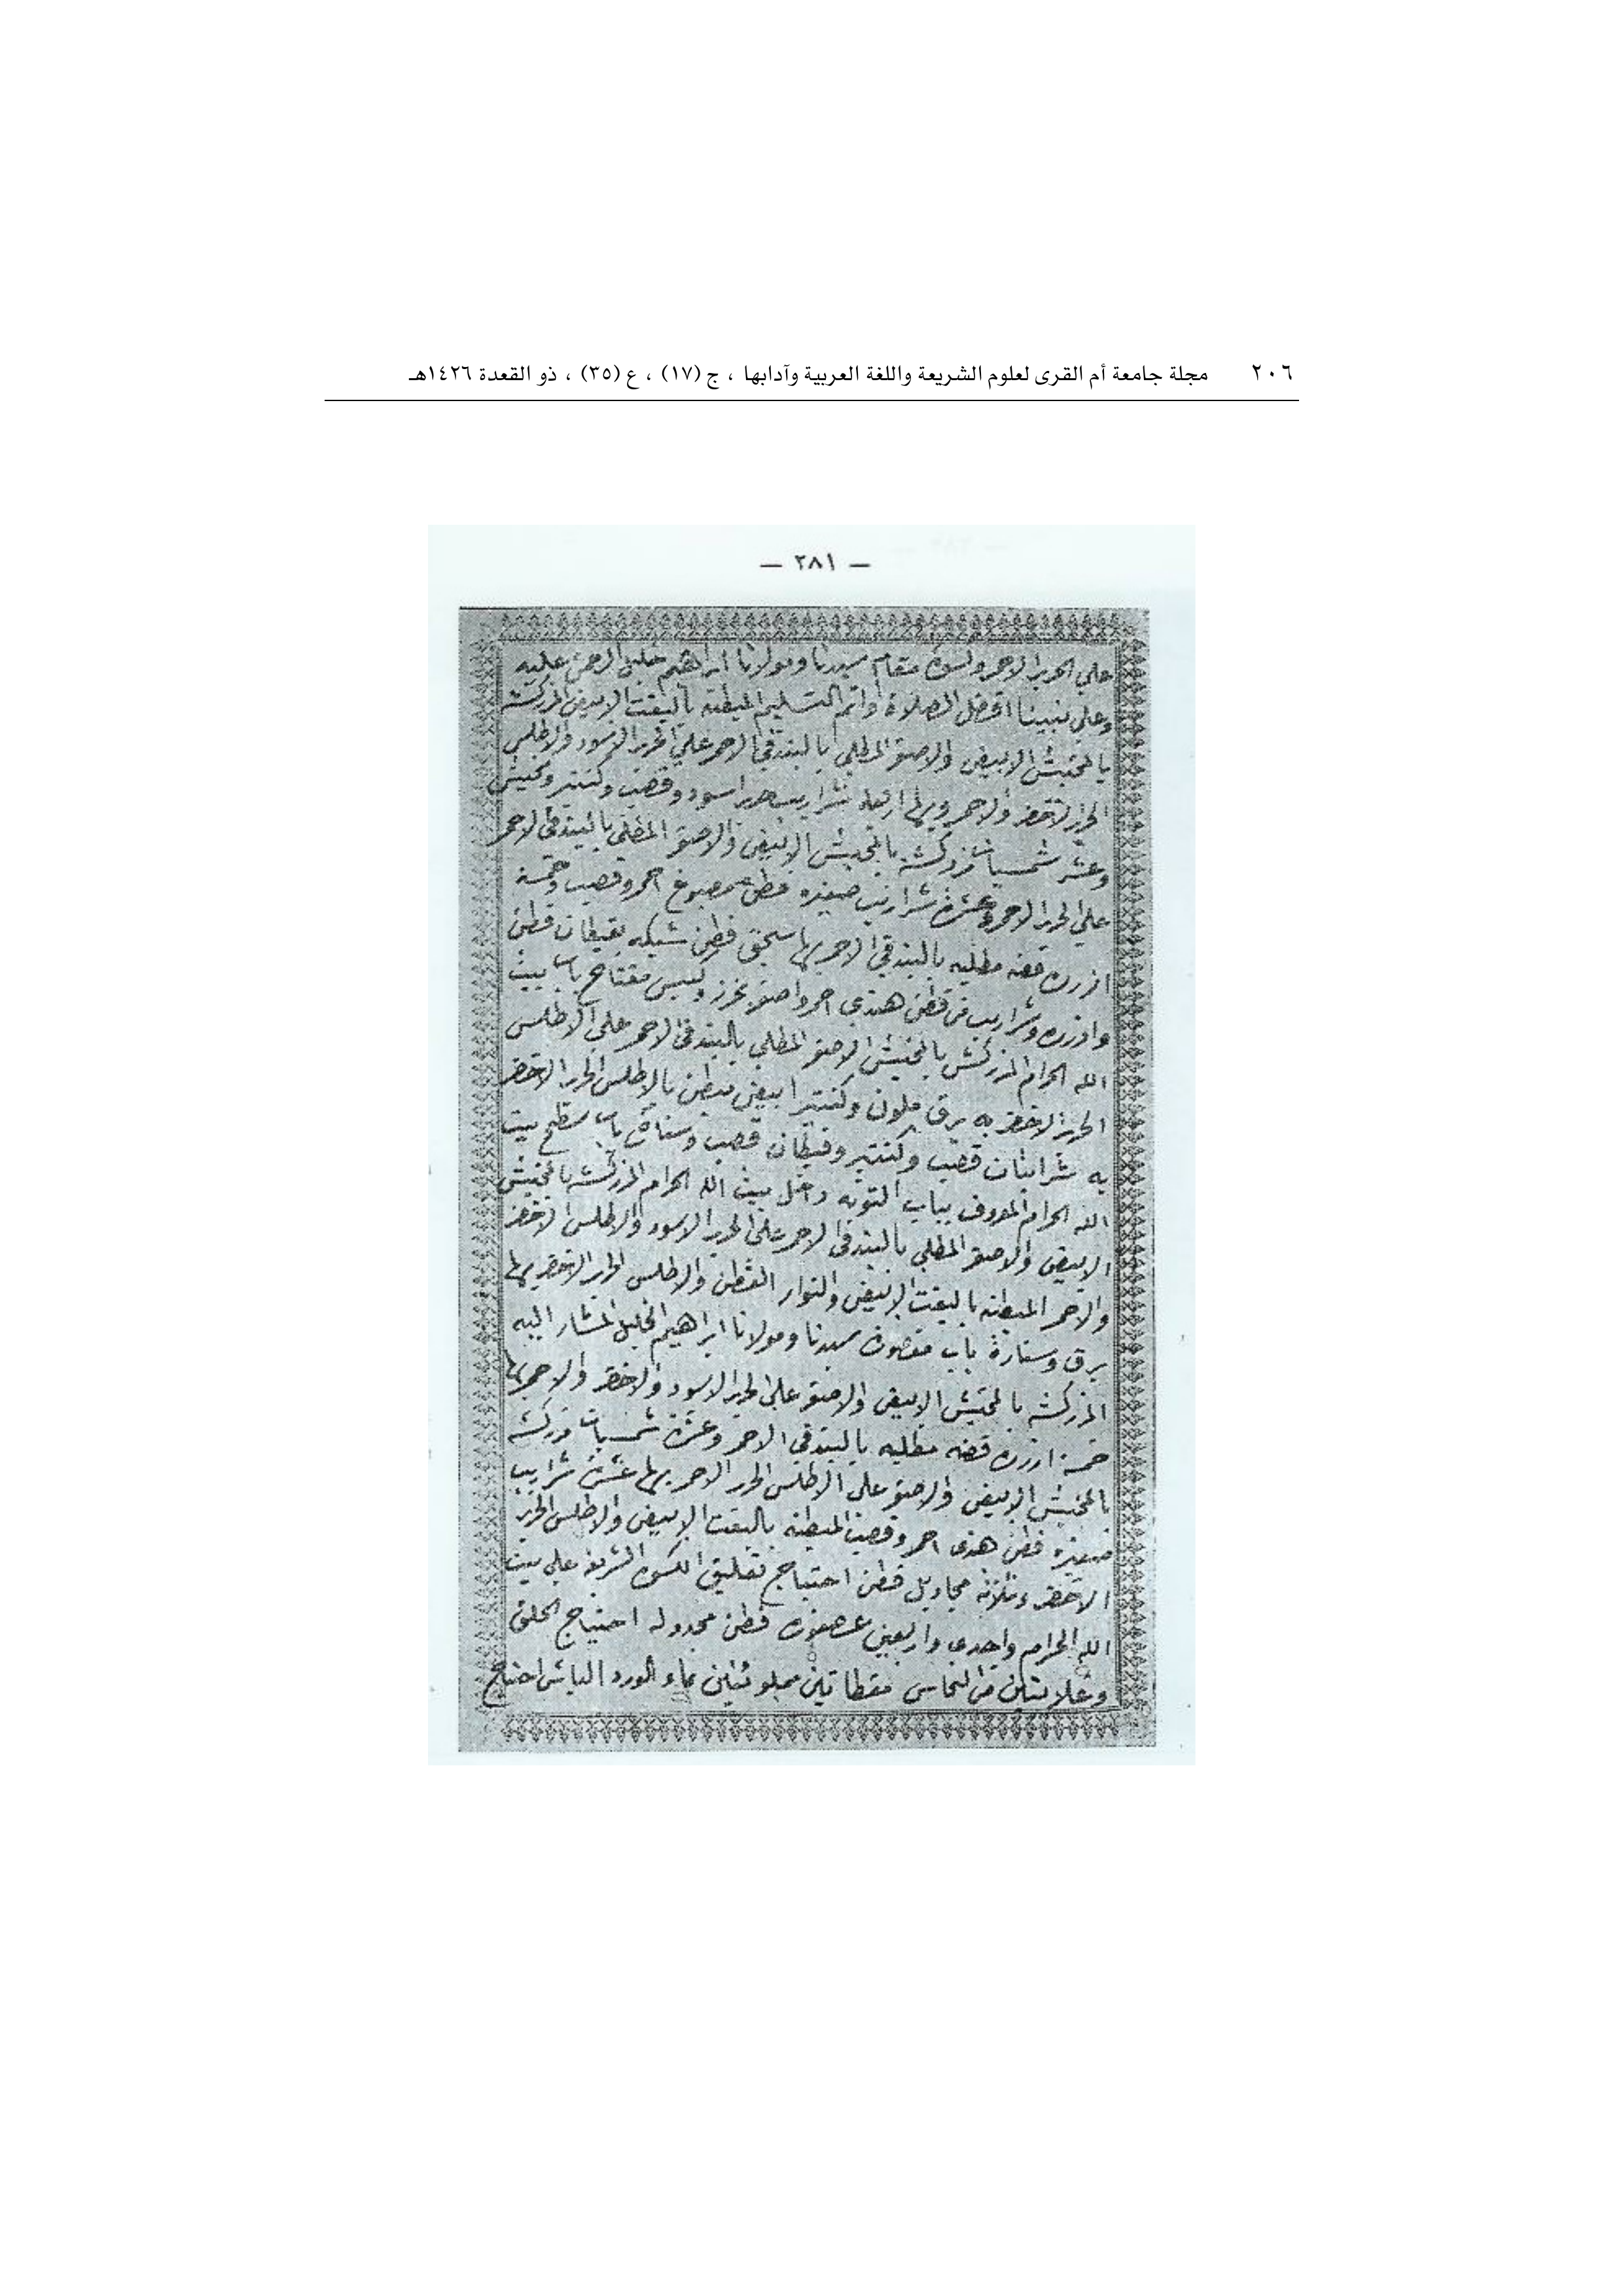 ٢٠٦ مجلة جامعة أم القرى لعلوم الشريعة واللغة العربية وآدابها ، ج (١٧) ، ع (٣٥) ، ذو القعدة ١٤٢٦هـ
— ٢٨١ —
على الحرير الاحمر وكسوة مقام سيدنا ومولانا ابراهيم خليل الرحمن عليه
وعلى نبينا افضل الصلاة واتم التسليم المبطنه بالبفت الابيض المزركشه
بالمخيش الابيض والاصفر المطلى بالبندقى الاحمر على الحرير الاسود والاطلس
الحرير الاخضر والاحمر وبها اربعه شراريب حرير اسود وقصب وكنتير ومخيش
وعشر شمسيات مزركشه بالمخيش الابيض والاصفر المطلى بالبندقى الاحمر
على الحرير الاحمر وعشرة شراريب صغيره قطن مصبوغ احمر وقصب وخمسة
ازرره فضه مطليه بالبندقى الاحمر بها سجق قطن شبكه بقيطان قطن
وازرره وشراريب من قطن هندى احمر واصفر بخرز وكيس مفتاح باب بيت
الله الحرام المزركش بالمخيش الاصفر المطلى بالبندقى الاحمر على الاطلس
الحرير الاخضر به برق ملون وكنتير ابيض مبطن بالاطلس الحرير الاخضر
به شرابتان قصب وكنتير وقيطان قصب وستارة باب سطح بيت
الله الحرام المعروف بباب التوبه داخل بيت الله الحرام المزركشه بالمخيش
الابيض والاصفر المطلى بالبندقى الاحمر على الحرير الاسود والاطلس الاخضر
والاحمر المبطنه بالبفت الابيض والنوار القطن والاطلس الحرير الاخضر بها
برق وستارة باب مقصورة سيدنا ومولانا ابراهيم الخليل المشار اليه
المزركشه بالمخيش الابيض والاصفر على الحرير الاسود والاخضر والاحمر بها
خمسة ازرره فضه مطليه بالبندقى الاحمر وعشرة شمسيات مزركشه
بالمخيش الابيض والاصفر على الاطلس الحرير الاحمر بها عشرة شراريب
صغيره قطن هندى احمر وقصب المبطنه بالبفت الابيض والاطلس الحرير
الاخضر وثلاثه مجاديل قطن احتياج تعليق الكسوة الشريفه على بيت
الله الحرام واحدى واربعين عصفورة قطن مجدوله احتياج الحلق
من النحاس مملوئتين بماء الورد احتياج